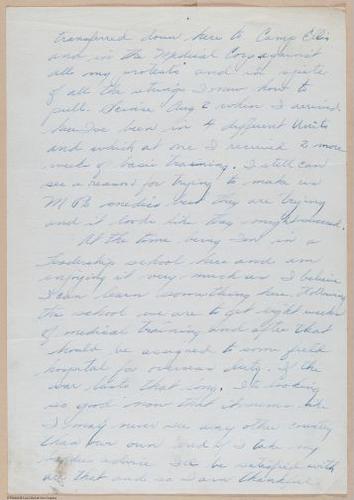 transferred down here to Camp Ellis
and in the Medical Corps against
all my protests and in spite
of all the strings I knew how to
pull. Since Aug 2 when I arrived
here I've been in 4 different Units
and which at one I received 2 more
weeks of basic training. I still can
see a reason for trying to make us
M P's medics but they are trying
and it looks like they might succeed.
At the time being I'm in a
leadership school here and am
enjoying it very much as I believe
I can learn something here. Following
the school we are to get eight weeks
of medical training and after that
should be assigned to some field
hospital for overseas duty. If the
war lasts that long. It's looking
so good now that it seems like
I may never see any other country
than our own and I take my
advice I'll be satisfied with
that and so I am thankful